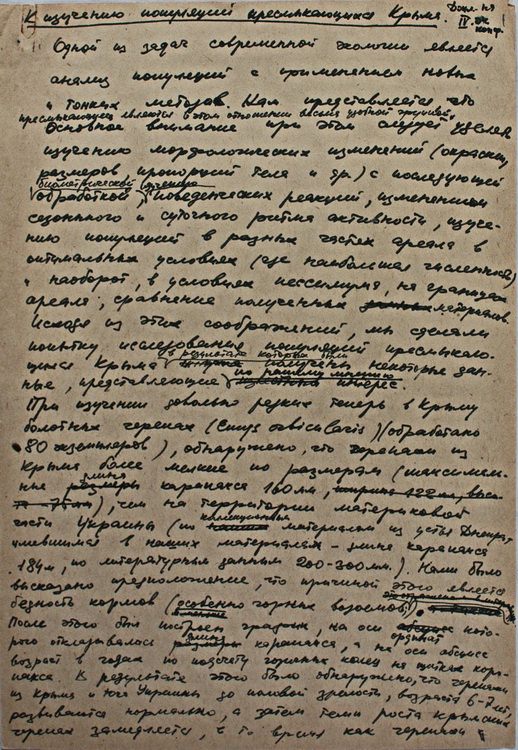 К изучению популяций пресмыкающихся Крыма. Докл. на IV эк. конф.
Одной из задач современной экологии является
анализ популяций с применением новых
и тонких методов. Нам представляется что
пресмыкающиеся являются в этом отношении весьма удобной группой.
Основное внимание при этом следует уделять
изучению морфологических изменений (окраски,
размеров, пропорций тела и др.) с последующей
биометрической изучению
обработкой, поведенческих реакций, изменениям
сезонного и суточного ритма активности, изуче-
нию популяций в разных частях ареала в
оптимальных условиях (где наибольшая численность)
и наоборот, в условиях пессимума, на границах
ареала, сравнение полученных данных материалов.
Исходя из этих соображений, мы сделали
попытку исследования популяций пресмыкаю-
в результате которых были
щихся Крыма получены некоторые дан-
по нашему мнению
ные, представляющие интерес.
При изучении довольно редких теперь в Крыму
болотных черепах (Emys orbicularis) (обработано
80 экземпляров), обнаружено, что черепахи из
Крыма более мелкие по размерам (максималь-
длина
ные размеры карапакса 160 мм, ширина 122 мм, высо-
та 75 мм), чем на территории материковой
коллекционным
части Украины (по нашим материалам из устья Днепра,
имевшимся в наших материалах - длина карапакса
184 м, по литературным данным 200-300 мм.). Нами было
высказано предположение, что причиной этого является
бедность кормов (особенно горных водоемов)
После этого был построен график, на оси абсцисс кото-
длина ординат
рого откладывалось размеры карапакса, а на оси абсцисс
возраст в годах по подсчету годичных колец на щитках кара-
пакса. В результате этого было обнаружено, что черепахи
из Крыма и юга Украины до половой зрелости, возраста 6-7 лет,
развиваются нормально, а затем темп роста крымских
черепах замедляется, в то время как черепахи